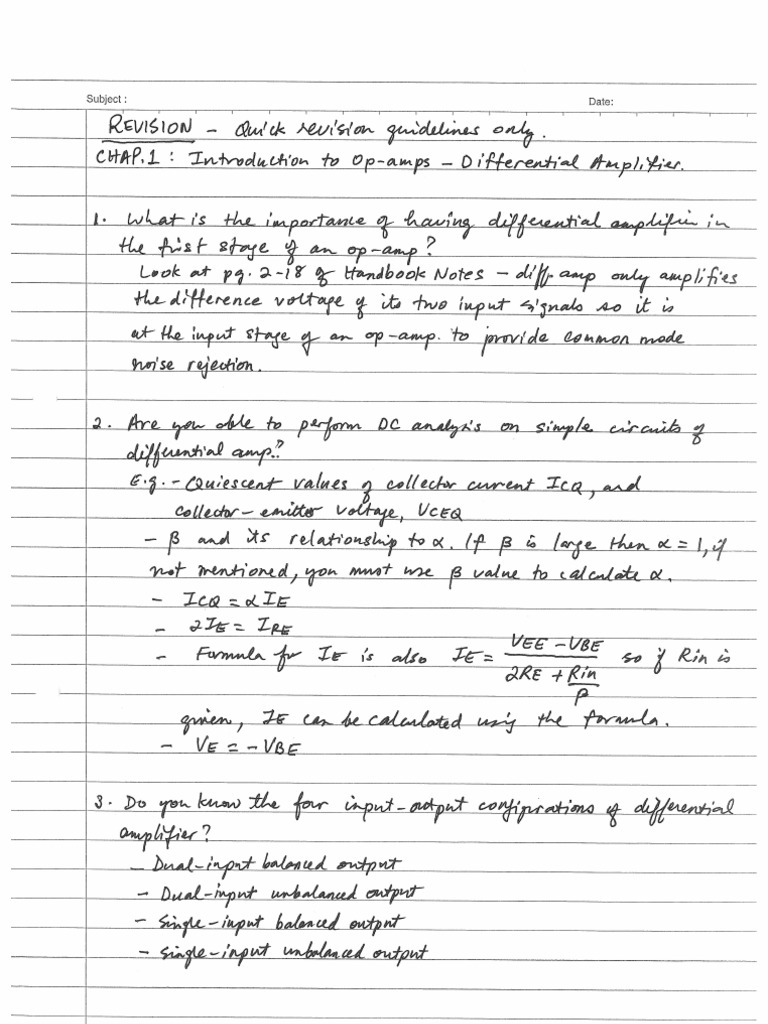 Subject :
Date:
REVISION - Quick revision guidelines only.
CHAP.1 : Introduction to Op-amps - Differential Amplifier.
1. What is the importance of having differential amplifier in
the first stage of an op-amp?
Look at pg. 2-18 of Handbook Notes - diff-amp only amplifies
the difference voltage of its two input signals so it is
at the input stage of an op-amp. to provide common mode
noise rejection.
2. Are you able to perform DC analysis on simple circuits of
differential amp.?
E.g. - Quiescent values of collector current ICQ, and
collector-emitter voltage, VCEQ
- β and its relationship to α. If β is large then α = 1, if
not mentioned, you must use β value to calculate α.
- ICQ = αIE
- 2IE = IRE
- Formula for IE is also IE = (VEE - VBE) / (2RE + Rin/β) so if Rin is
given, IE can be calculated using the formula.
- VE = -VBE
3. Do you know the four input-output configurations of differential
amplifier?
- Dual-input balanced output
- Dual-input unbalanced output
- Single-input balanced output
- Single-input unbalanced output